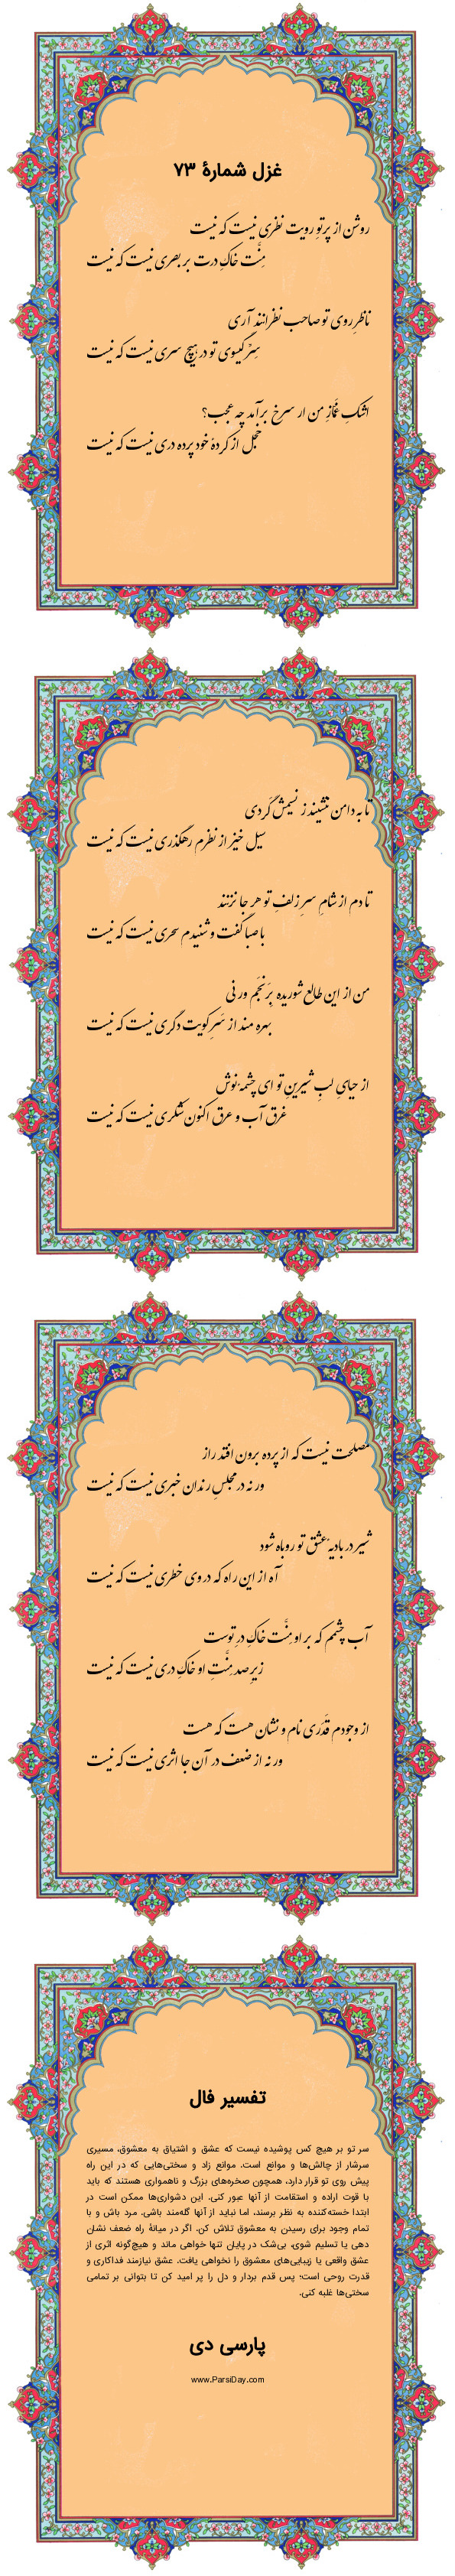 غزل شمارهٔ ۷۳
روشن از پرتوِ رویت نظری نیست که نیست
مِنَّت خاکِ درت بر بصری نیست که نیست
ناظرِ روی تو صاحب نظرانند آری
سِرِّ گیسوی تو در هیچ سری نیست که نیست
اشکِ غَمّازِ من ار سرخ برآمد چه عجب؟
خجل از کردهٔ خود پرده دری نیست که نیست
تا به دامن ننشیند ز نسیمش گَردی
سیل خیز از نظرم رهگذری نیست که نیست
تا دم از شامِ سرِ زلفِ تو هر جا نزنند
با صبا گفت و شنیدم سحری نیست که نیست
من از این طالعِ شوریده بِرَنجَم ور نی
بهره مند از سَرِ کویت دگری نیست که نیست
از حیایِ لبِ شیرینِ تو ای چشمهٔ نوش
غرقِ آب و عرق اکنون شکری نیست که نیست
مصلحت نیست که از پرده برون افتد راز
ور نه در مجلسِ رندان خبری نیست که نیست
شیر در بادیهٔ عشقِ تو روباه شود
آه از این راه که در وی خطری نیست که نیست
آب چشمم که بر او مِنَّت خاکِ درِ توست
زیرِ صد مِنَّتِ او خاکِ دری نیست که نیست
از وجودم قَدَری نام و نشان هست که هست
ور نه از ضعف در آن جا اثری نیست که نیست
تفسیر فال
سر تو بر هیچ کس پوشیده نیست که عشق و اشتیاق به معشوق، مسیری
سرشار از چالش‌ها و موانع است. موانع زاد و سختی‌هایی که در این راه
پیش روی تو قرار دارد، همچون صخره‌های بزرگ و ناهمواری هستند که باید
با قوت اراده و استقامت از آنها عبور کنی. این دشواری‌ها ممکن است در
ابتدا خسته‌کننده به نظر برسند، اما نباید از آنها گله‌مند باشی. مرد باش و با
تمام وجود برای رسیدن به معشوق تلاش کن. اگر در میانهٔ راه ضعف نشان
دهی یا تسلیم شوی، بی‌شک در پایان تنها خواهی ماند و هیچ‌گونه اثری از
عشق واقعی یا زیبایی‌های معشوق را نخواهی یافت. عشق نیازمند فداکاری و
قدرت روحی است؛ پس قدم بردار و دل را پر امید کن تا بتوانی بر تمامی
سختی‌ها غلبه کنی.
پارسی دی
www.ParsiDay.com